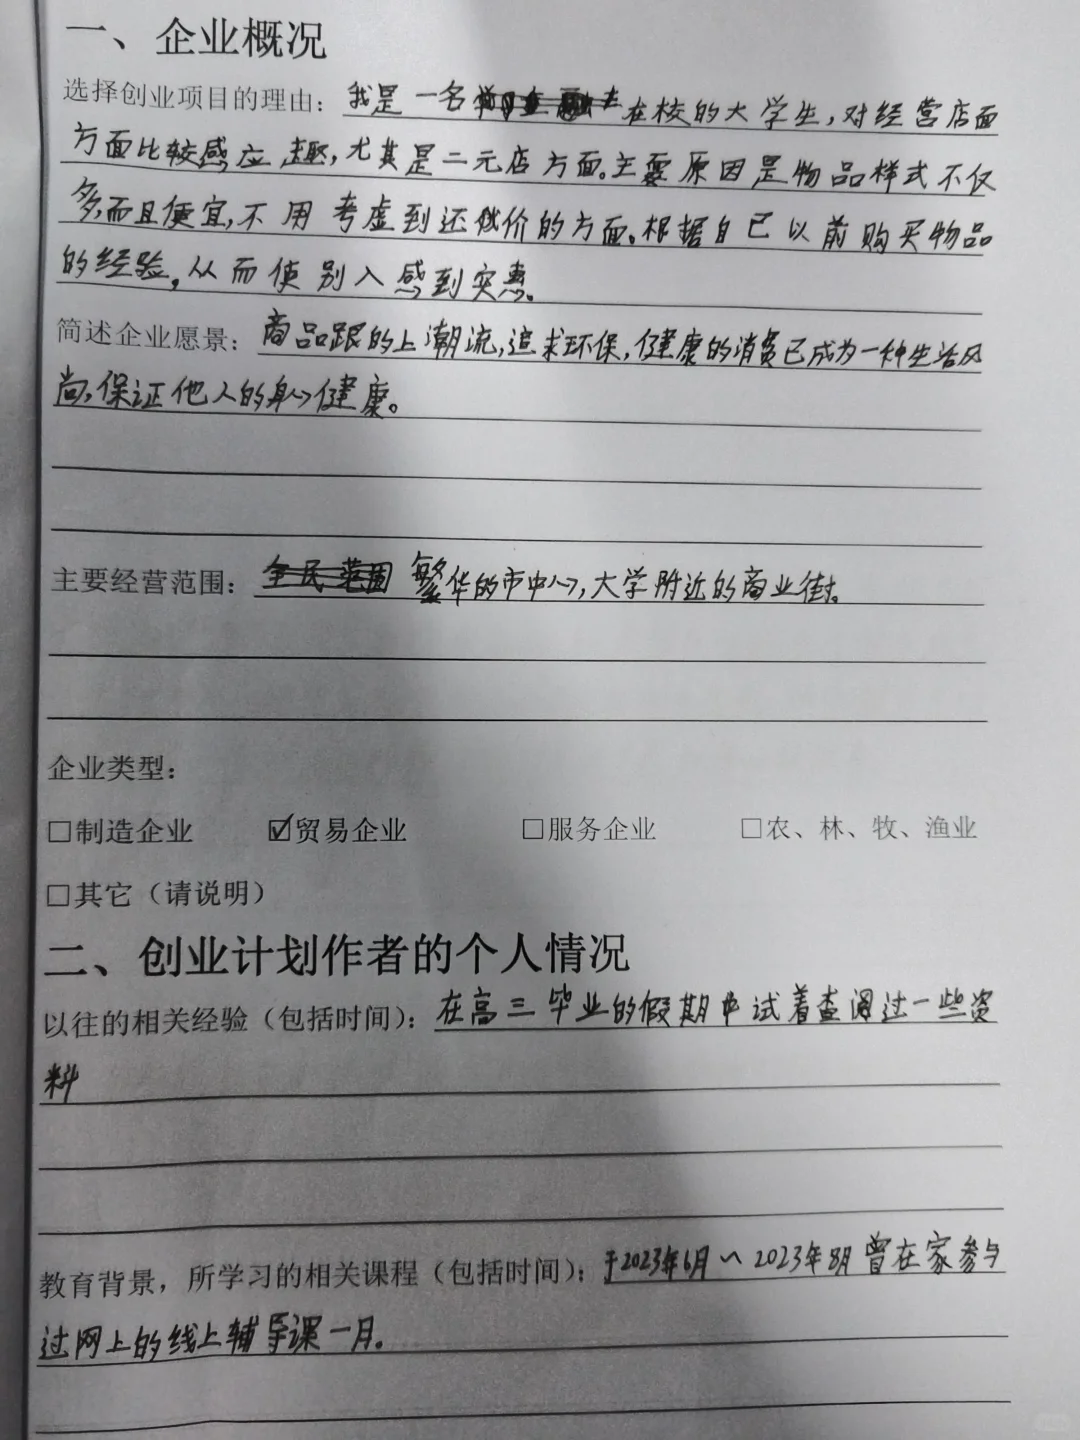 一、企业概况
选择创业项目的理由：我是一名在校的大学生，对经营店面
方面比较感应趣，尤其是二元店方面。主要原因是物品样式不仅
多，而且便宜，不用考虑到还价的方面。根据自已以前购买物品
的经验，从而使别人感到实惠。
简述企业愿景：商品跟的上潮流，追求环保，健康的消费已成为一种生活风
尚，保证他人的身心健康。
主要经营范围：全民范围 繁华的市中心，大学附近的商业街。
企业类型：
□制造企业 ☑贸易企业 □服务企业 □农、林、牧、渔业
□其它（请说明）
二、创业计划作者的个人情况
以往的相关经验（包括时间）：在高三毕业的假期中试着查阅过一些资
料
教育背景，所学习的相关课程（包括时间）：于2023年6月～2023年8月曾在家参与
过网上的线上辅导课一月。